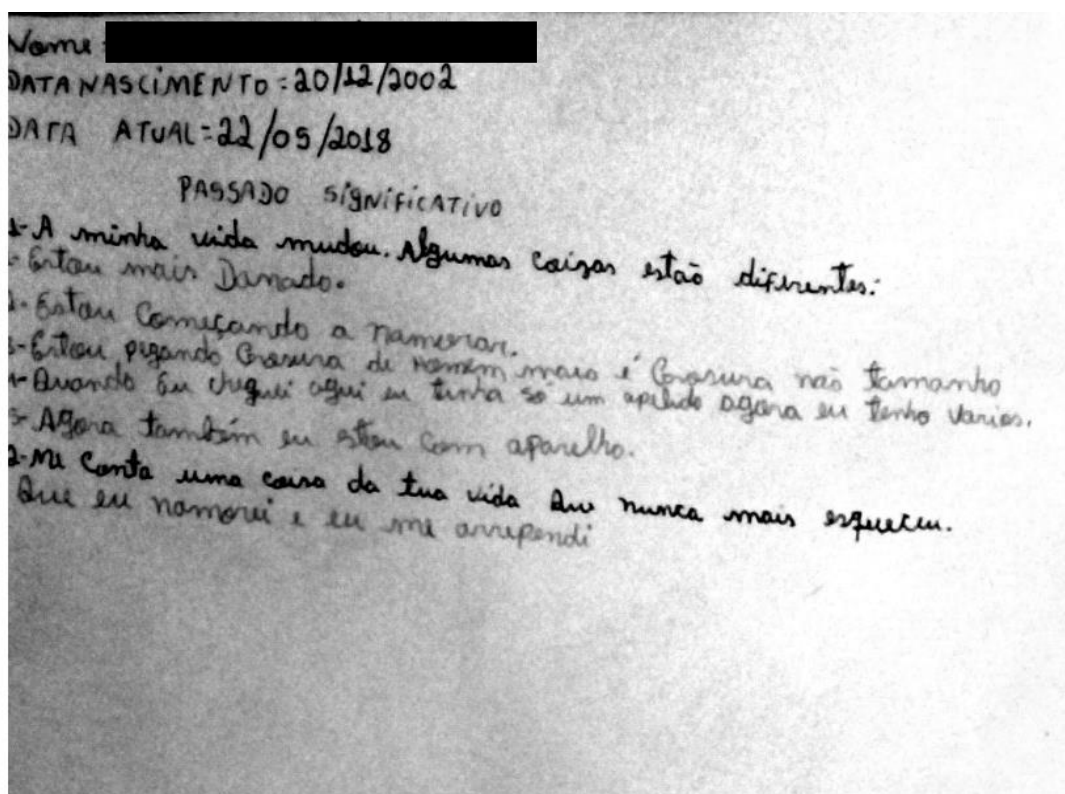 Nome:
DATA NASCIMENTO = 20/12/2002
DATA ATUAL = 22/05/2018
PASSADO SIGNIFICATIVO
1-A minha vida mudou. Algumas coizas estão diferentes:
1-Estou mais Danado.
2-Estou Começando a namorar.
3-Estou pegando Grosura de Homem mais é Grosura não tamanho
4-Quando Eu cheguei aqui eu tinha só um apelido agora eu tenho varios.
5-Agora também eu estou com aparelho.
2-Me Conta uma coisa da tua vida que nunca mais esqueceu.
Que eu namorei e eu me arrependi